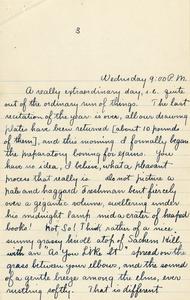 3
Wednesday 9:00 P.M.
A really extraordinary day, i.e. quite
out of the ordinary run of things. The last
recitation of the year is over, all our drawing
plates have been returned [about 10 pounds
of them], and this morning I formally began
the preparatory boning for exams. You
have no idea, I believe, what a pleasant
process that really is. Do not picture a
pale and haggard Freshman bent fiercely
over a gigantic volume, sweltering under
his midnight lamp mid a crater of heaped
books! Not So! Think rather of a nice,
sunny grassy knoll atop of Sachem Hill,
with an "As You Like It" spread on the
grass between your elbows, and the sound
of a gentle breeze among the elms, ever
rustling softly. That is different